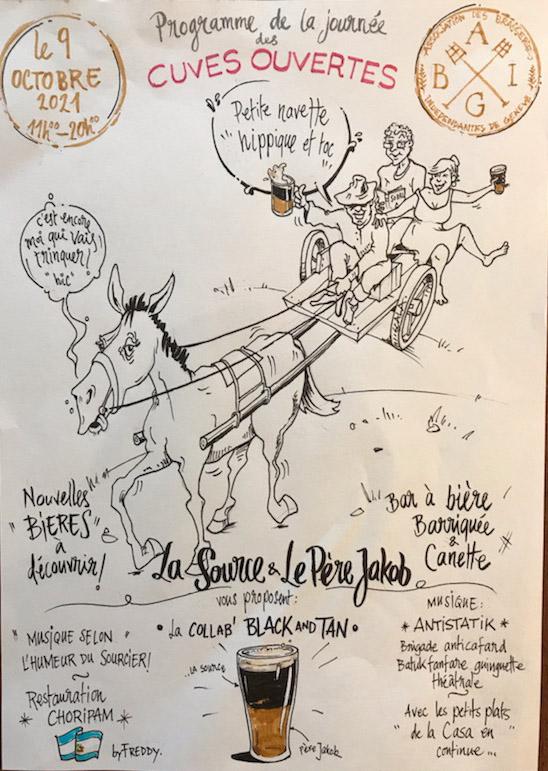 Programme de la journée
des
CUVES OUVERTES
le 9
OCTOBRE
2021
11h00-20h00
ASSOCIATION DES BRASSERIES
INDÉPENDANTES DE GENÈVE
A
B I
G
Petite navette
hippique et toc
c'est encore
moi qui vais
trinquer!
"hic"
Nouvelles
"BIÈRES"
à
découvrir!
Bar à bière
Barriquée
&
Canette
La Source & Le Père Jakob
vous proposent:
• La COLLAB' BLACK AND TAN •
"MUSIQUE SELON
L'HUMEUR DU SOURCIER!"
~
Restauration
* CHORIPAM *
by FREDDY.
..LA SOURCE
Père Jakob
MUSIQUE:
* ANTISTATIK *
Brigade anticafard
Batukfanfare guinguette
théâtrale
~
Avec les petits plats
" de la Casa en "
continue...